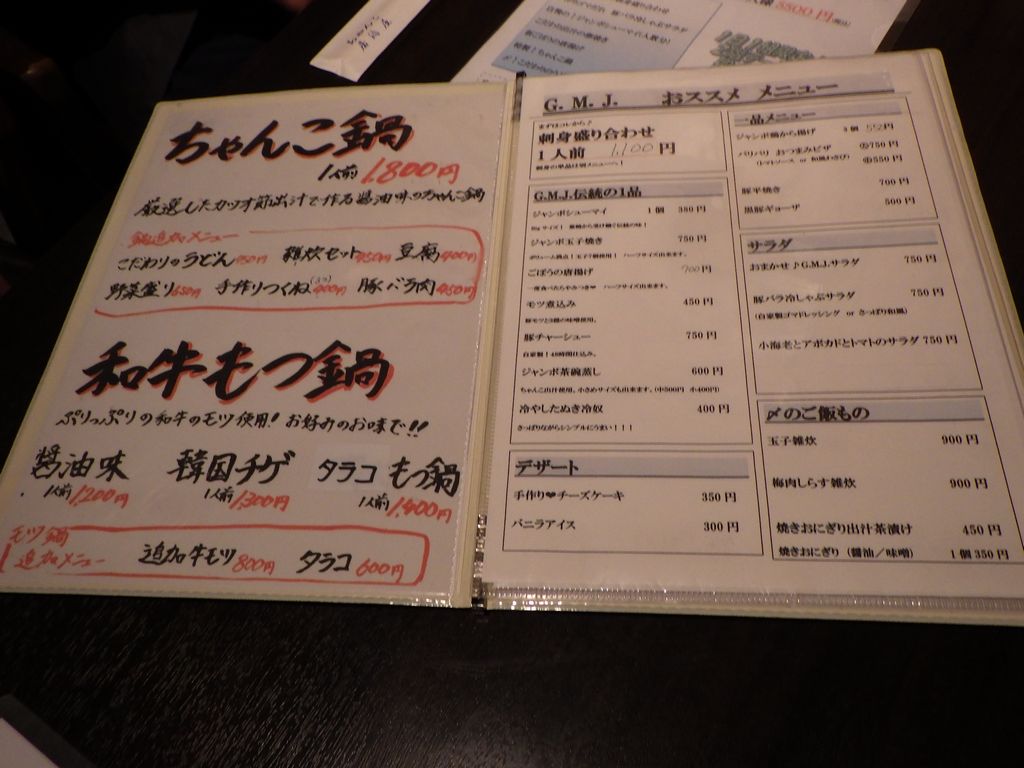 ちゃんこ鍋
1人前 1,800円
厳選したカツオ節出汁で作る醤油味のちゃんこ鍋
鍋追加メニュー
こだわりのうどん 雑炊セット 豆腐400円
野菜盛り650円 手作りつくね 400円 豚バラ肉450円
和牛もつ鍋
ぷりっぷりの和牛のモツ使用! お好みのお味で!!
醤油味 韓国チゲ タラコもつ鍋
1人前1,200円 1人前1,300円 1人前1,400円
モツ鍋
追加メニュー 追加牛モツ800円 タラコ600円
G.M.J. おススメ メニュー
まずはコレから♪
刺身盛り合わせ
1人前 1,100円
刺身の単品は別メニューへ!
G.M.J.伝統の1品
ジャンボシューマイ 1個 380円
ジャンボ玉子焼き 750円
ごぼうの唐揚げ 700円
モツ煮込み 450円
豚チャーシュー 750円
自家製!48時間仕込み。
ジャンボ茶碗蒸し 600円
ちゃんこ出汁使用。小さめサイズも出来ます。(中500円 小400円)
冷やしたぬき冷奴 400円
さっぱりながらシンプルにうまい!!!
デザート
手作り♥チーズケーキ 350円
バニラアイス 300円
一品メニュー
ジャンボ鶏から揚げ 3個 550円
パリパリ おつまみピザ 大750円
(トマトソース or 和風わさび) 小550円
豚平焼き 700円
黒豚ギョーザ 500円
サラダ
おまかせ♪G.M.J.サラダ 750円
豚バラ冷しゃぶサラダ 750円
(自家製ゴマドレッシング or さっぱり和風)
小海老とアボカドとトマトのサラダ 750円
〆のご飯もの
玉子雑炊 900円
梅肉しらす雑炊 900円
焼きおにぎり出汁茶漬け 450円
焼きおにぎり(醤油/味噌) 1個 350円